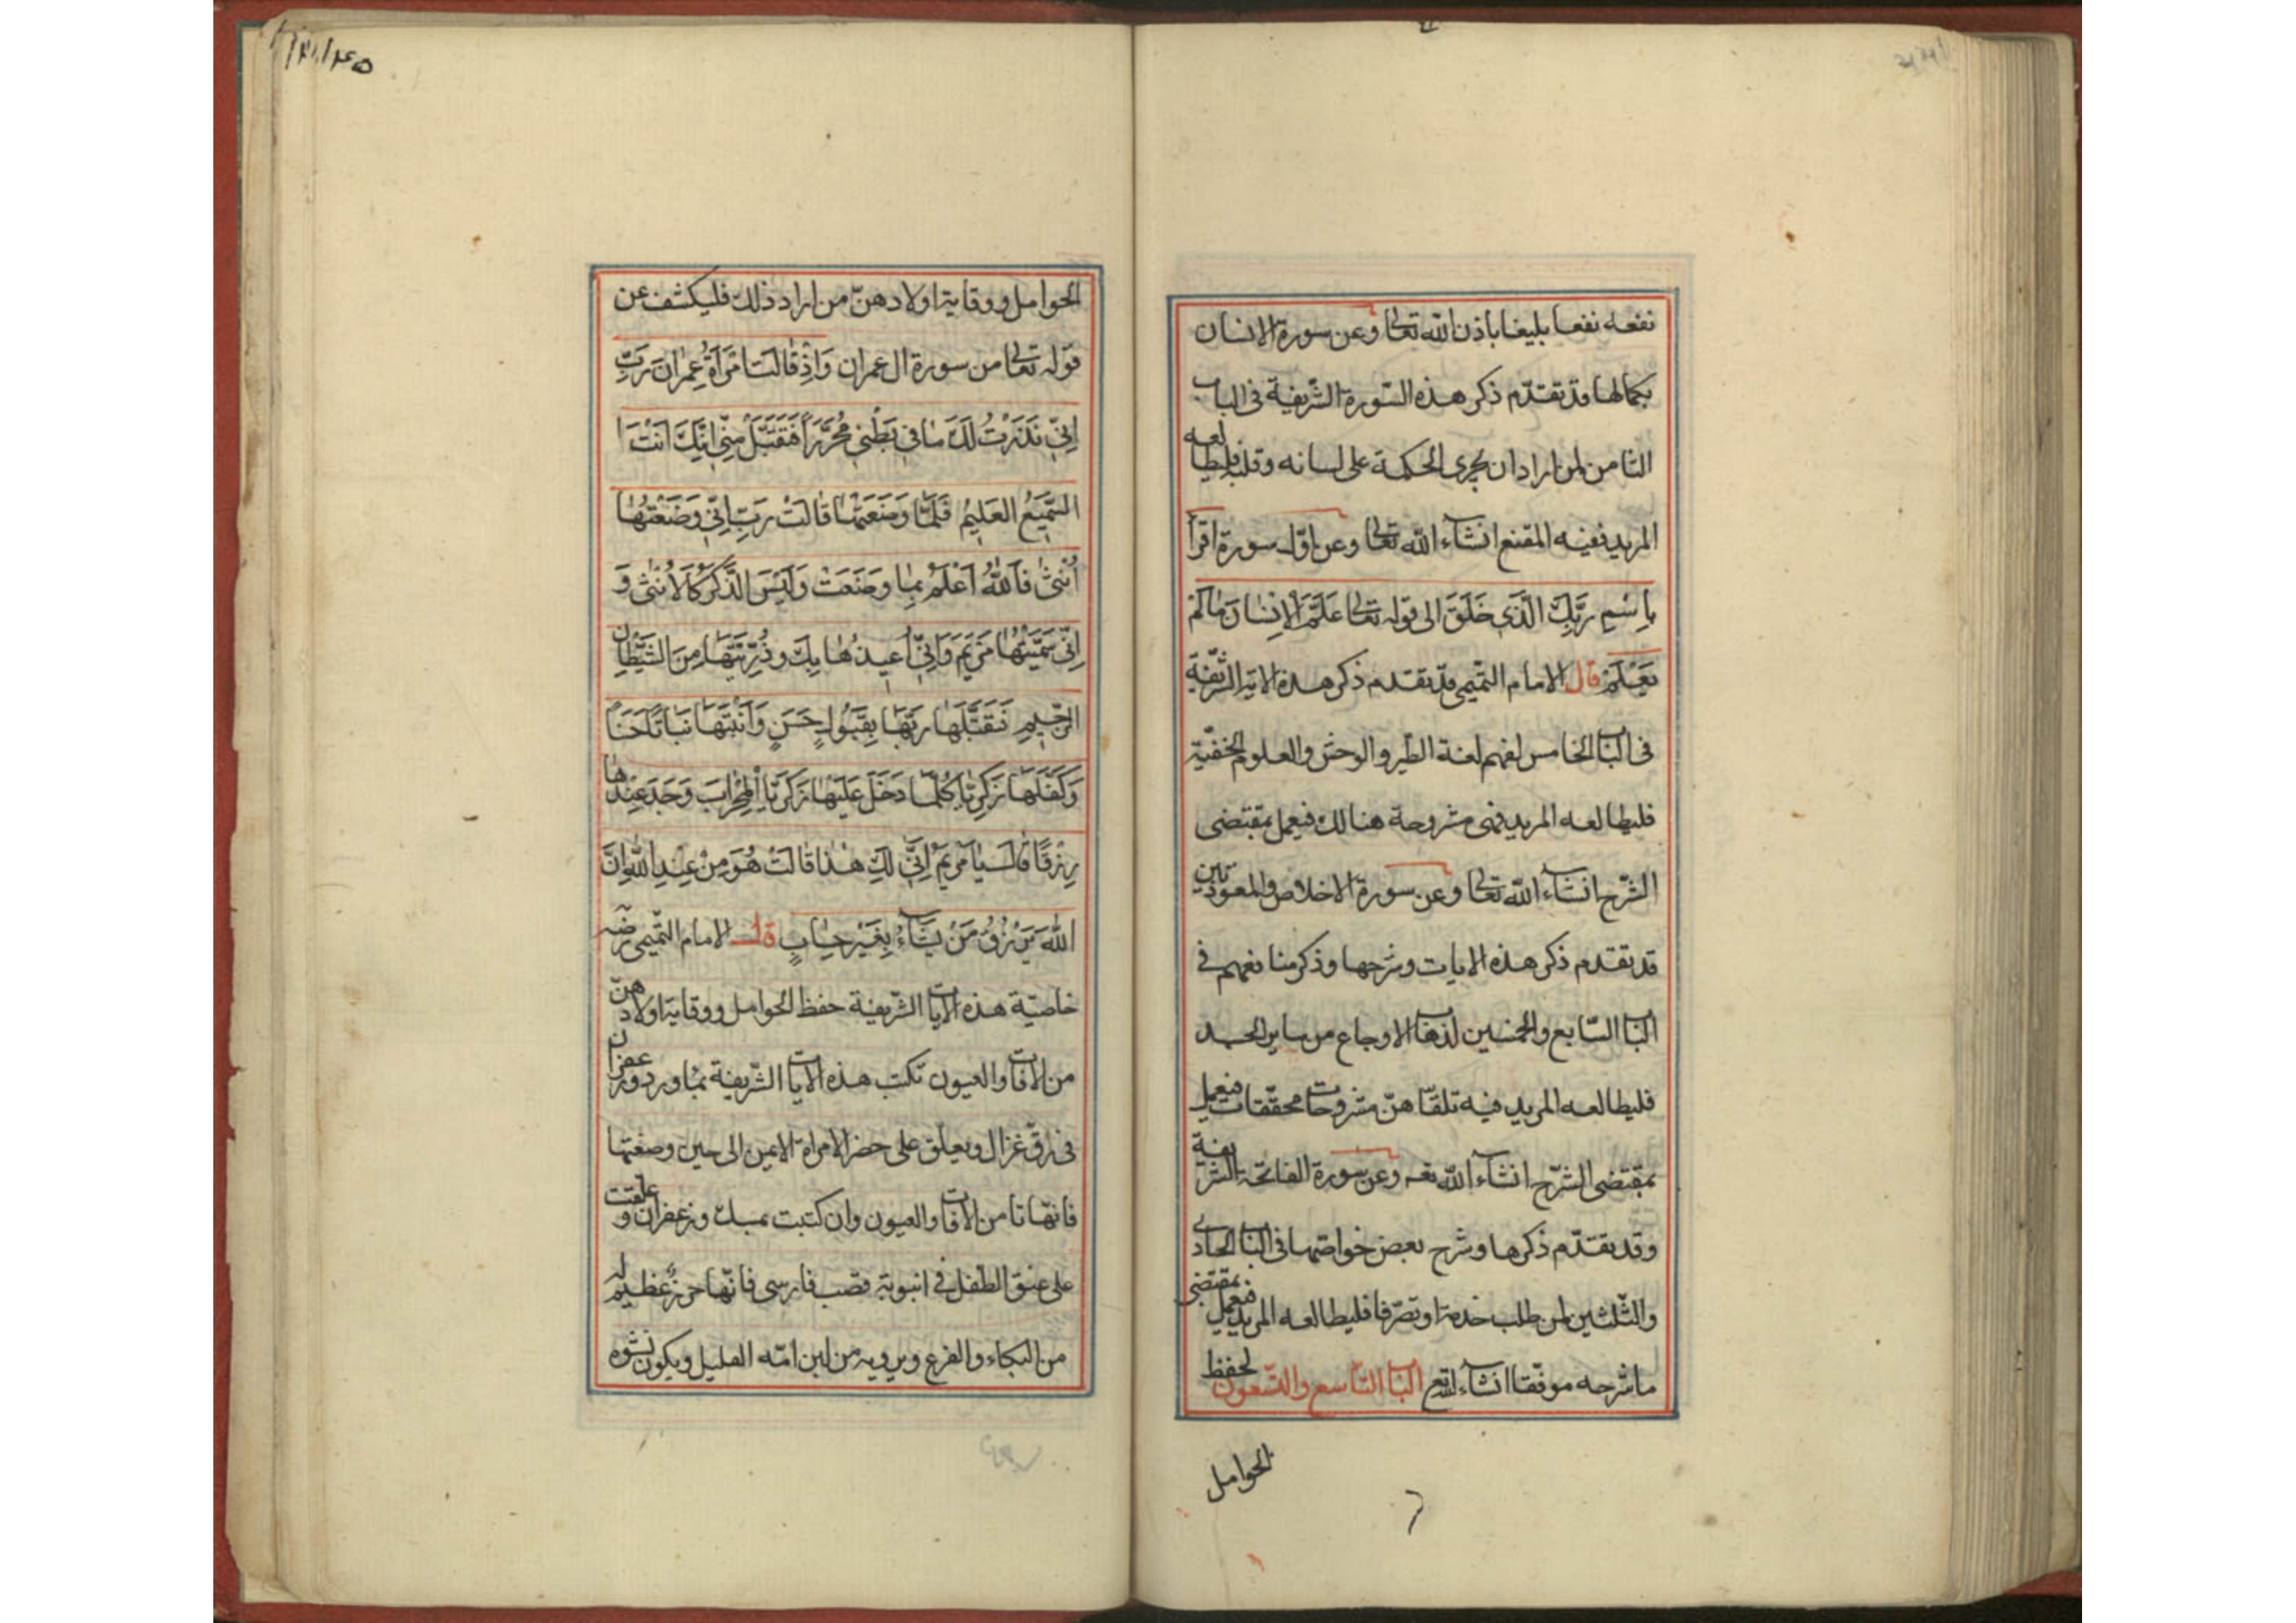 نفعه نفعا بليغا باذن الله تعالى وعن سورة الانسان
بكمالها قد تقدّم ذكر هذه السّورة الشّريفة فى الباب
الثامن لمن اراد ان يجرى الحكمة على لسانه وقلبه فليطالعه
المريد ففيه المقنع انشاء الله تعالى وعن اوّل سورة اقرأ
بِاسْمِ رَبِّكَ الَّذِي خَلَقَ الى قوله تعالى عَلَّمَ الْاِنْسَانَ مَا لَمْ
يَعْلَمْ قال الامام التميمى قد تقدم ذكر هذة الاية الشّريفة
فى الباب الخامس لفهم لغة الطّير والوحش والعلوم الخفيّة
فليطالعه المريد فهى مشروحة هنالك فيعمل بمقتضى
الشّرح انشاء الله تعالى وعن سورة الاخلاص والمعوذتين
قد تقدم ذكر هذه الايات وشرحها وذكر منافعهم فى
الباب السّابع والخمسين لذهاب الاوجاع من ساير الجسد
فليطالعه المريد فيه تلقاهنّ مشروحات محققات فيعمل
بمقتضى الشّرح انشاء الله تعه وعن سورة الفاتحة الشريفة
وقد تقدّم ذكرها وشرح بعض خواصّها فى الباب الحادى
والثّلثين لمن طلب خدمة او تصرّفا فليطالعه المريد فيعمل بمقتضى
ما شرحه موفقا انشاء الله تع الباب التاسع والتسعون لحفظ
الحوامل
الحوامل ووقاية اولادهنّ من اراد ذلك فليكشف عن
قوله تعالى من سورة ال عمران وَاِذْ قَالَتِ امْرَأَةُ عِمْرَانَ رَبِّ
اِنِّي نَذَرْتُ لَكَ مَا فِي بَطْنِي مُحَرَّرًا فَتَقَبَّلْ مِنِّي اِنَّكَ اَنْتَ ا
السَّمِيعُ العَلِيمُ فَلَمَّا وَضَعَتْهَا قَالَتْ رَبِّ اِنِّي وَضَعْتُهَا
اُنْثَى فَاللهُ اَعْلَمُ بِمَا وَضَعَتْ وَلَيْسَ الذَّكَرُ كَالْاُنْثَى وَ
اِنِّي سَمَّيْتُهَا مَرْيَمَ وَاِنِّي اُعِيذُهَا بِكَ وَذُرِّيَّتَهَا مِنَ الشَّيْطَانِ
الرَّجِيمِ فَتَقَبَّلَهَا رَبُّهَا بِقَبُولٍ حَسَنٍ وَاَنْبَتَهَا نَبَاتًا حَسَنًا
وَكَفَّلَهَا زَكَرِيَّا كُلَّمَا دَخَلَ عَلَيْهَا زَكَرِيَّا الْمِحْرَابَ وَجَدَ عِنْدَهَا
رِزْقًا قَالَ يَا مَرْيَمُ اَنَّى لَكِ هَذَا قَالَتْ هُوَ مِنْ عِنْدِ اللهِ اِنَّ
اللهَ يَرْزُقُ مَنْ يَشَاءُ بِغَيْرِ حِسَابٍ قال الامام التّميمى رضه
خاصيّة هذه الايات الشّريفة حفظ الحوامل ووقاية اولادهنّ
من الافات والعيون تكتب هذه الايات الشّريفة بماورد وزعفران
فى رقّ غزال ويعلّق على خصر الامراة الايمن الى حين وضعتها
فانّها تامن الافات والعيون وان كتبت بمسك وزعفران وعلقت
على عنق الطّفل فى انبوبة قصب فارسى فانّها حرز عظيم له
من البكاء والفزع ويرويه من لبن امّه القليل ويكون نشوه